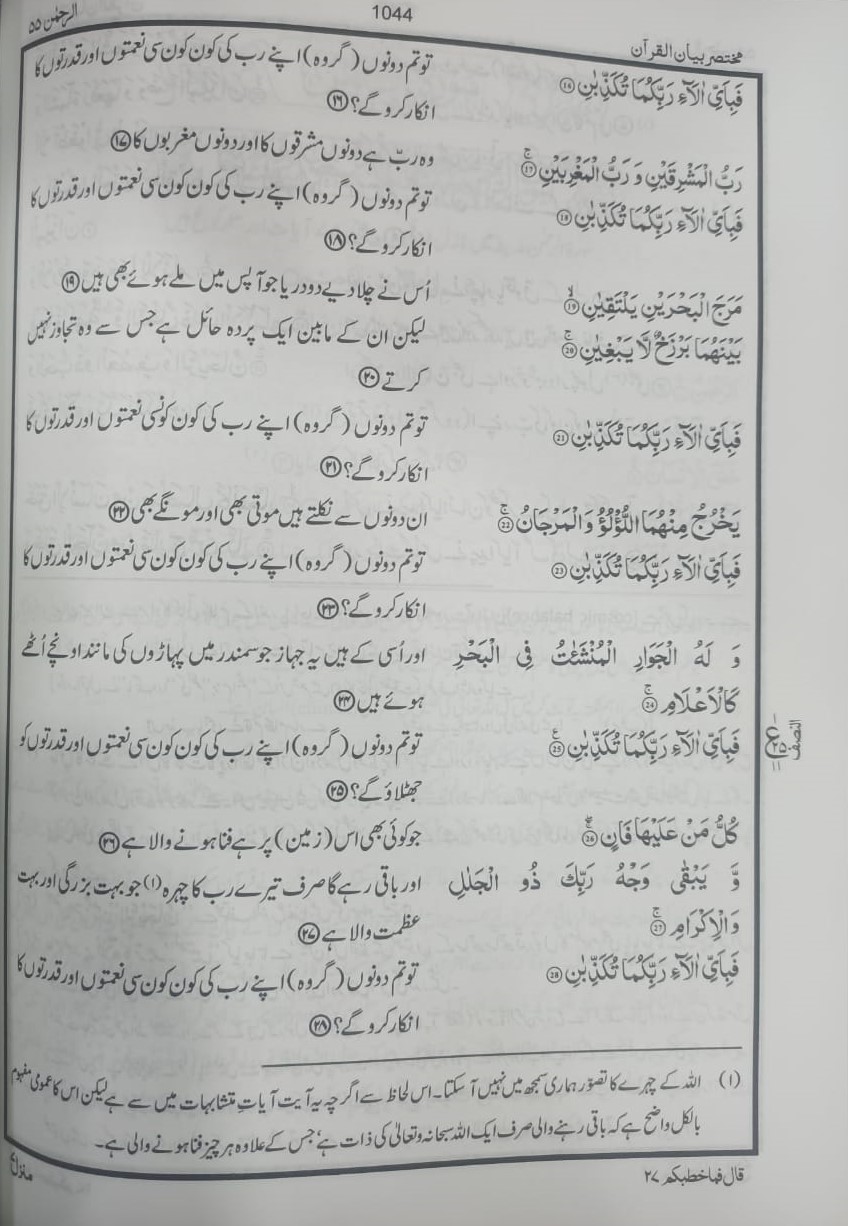 الرحمٰن ۵۵
1044
مختصر بیان القرآن
فَبِاَیِّ اٰلَآءِ رَبِّكُمَا تُكَذِّبٰنِ ⑯
تو تم دونوں (گروہ) اپنے رب کی کون کون سی نعمتوں اور قدرتوں کا
انکار کرو گے؟ ⑯
رَبُّ الْمَشْرِقَیْنِ وَ رَبُّ الْمَغْرِبَیْنِ ⑰
وہ ربّ ہے دونوں مشرقوں کا اور دونوں مغربوں کا ⑰
فَبِاَیِّ اٰلَآءِ رَبِّكُمَا تُكَذِّبٰنِ ⑱
تو تم دونوں (گروہ) اپنے رب کی کون کون سی نعمتوں اور قدرتوں کا
انکار کرو گے؟ ⑱
مَرَجَ الْبَحْرَیْنِ یَلْتَقِیٰنِ ⑲
اُس نے چلا دیے دو دریا جو آپس میں ملے ہوئے بھی ہیں ⑲
بَیْنَهُمَا بَرْزَخٌ لَّا یَبْغِیٰنِ ⑳
لیکن ان کے مابین ایک پردہ حائل ہے جس سے وہ تجاوز نہیں
کرتے ⑳
فَبِاَیِّ اٰلَآءِ رَبِّكُمَا تُكَذِّبٰنِ ㉑
تو تم دونوں (گروہ) اپنے رب کی کون کونسی نعمتوں اور قدرتوں کا
انکار کرو گے؟ ㉑
یَخْرُجُ مِنْهُمَا اللُّؤْلُؤُ وَ الْمَرْجَانُ ㉒
ان دونوں سے نکلتے ہیں موتی بھی اور مونگے بھی ㉒
فَبِاَیِّ اٰلَآءِ رَبِّكُمَا تُكَذِّبٰنِ ㉓
تو تم دونوں (گروہ) اپنے رب کی کون کون سی نعمتوں اور قدرتوں کا
انکار کرو گے؟ ㉓
وَ لَهُ الْجَوَارِ الْمُنْشَـٰٔتُ فِی الْبَحْرِ
كَالْاَعْلَامِ ㉔
اور اُسی کے ہیں یہ جہاز جو سمندر میں پہاڑوں کی مانند اونچے اُٹھے
ہوئے ہیں ㉔
فَبِاَیِّ اٰلَآءِ رَبِّكُمَا تُكَذِّبٰنِ ㉕
تو تم دونوں (گروہ) اپنے رب کی کون کون سی نعمتوں اور قدرتوں کو
جھٹلاؤ گے؟ ㉕
النصف
ع
كُلُّ مَنْ عَلَیْهَا فَانٍ ㉖
جو کوئی بھی اس (زمین) پر ہے فنا ہونے والا ہے ㉖
وَّ یَبْقٰی وَجْهُ رَبِّكَ ذُو الْجَلٰلِ
وَ الْاِكْرَامِ ㉗
اور باقی رہے گا صرف تیرے رب کا چہرہ (۱) جو بہت بزرگی اور بہت
عظمت والا ہے ㉗
فَبِاَیِّ اٰلَآءِ رَبِّكُمَا تُكَذِّبٰنِ ㉘
تو تم دونوں (گروہ) اپنے رب کی کون کون سی نعمتوں اور قدرتوں کا
انکار کرو گے؟ ㉘
(۱) اللہ کے چہرے کا تصوّر ہماری سمجھ میں نہیں آ سکتا۔ اس لحاظ سے اگرچہ یہ آیت آیاتِ متشابہات میں سے ہے لیکن اس کا عمومی مفہوم
بالکل واضح ہے کہ باقی رہنے والی صرف ایک اللہ سبحانہ وتعالیٰ کی ذات ہے' جس کے علاوہ ہر چیز فنا ہونے والی ہے۔
قال فما خطبکم ۲۷
منزل۷